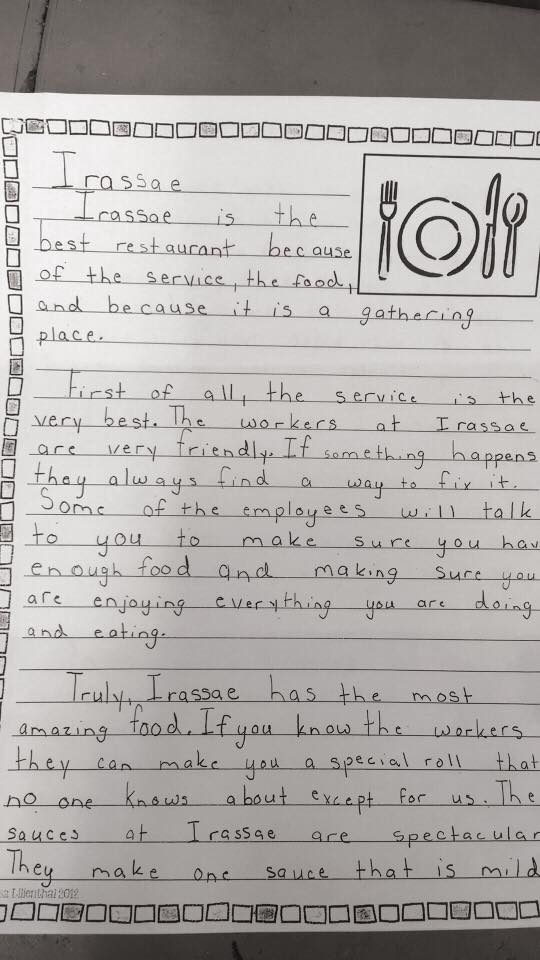 Irassae
Irassae is the
best restaurant because
of the service, the food,
and because it is a gathering
place.
First of all, the service is the
very best. The workers at Irassae
are very friendly. If something happens
they always find a way to fix it.
Some of the employees will talk
to you to make sure you hav
enough food and making sure you
are enjoying everything you are doing
and eating.
Truly, Irassae has the most
amazing food. If you know the workers
they can make you a special roll that
no one knows about except for us. The
sauces at Irassae are spectacular
They make one sauce that is mild
Lilienthal 2012